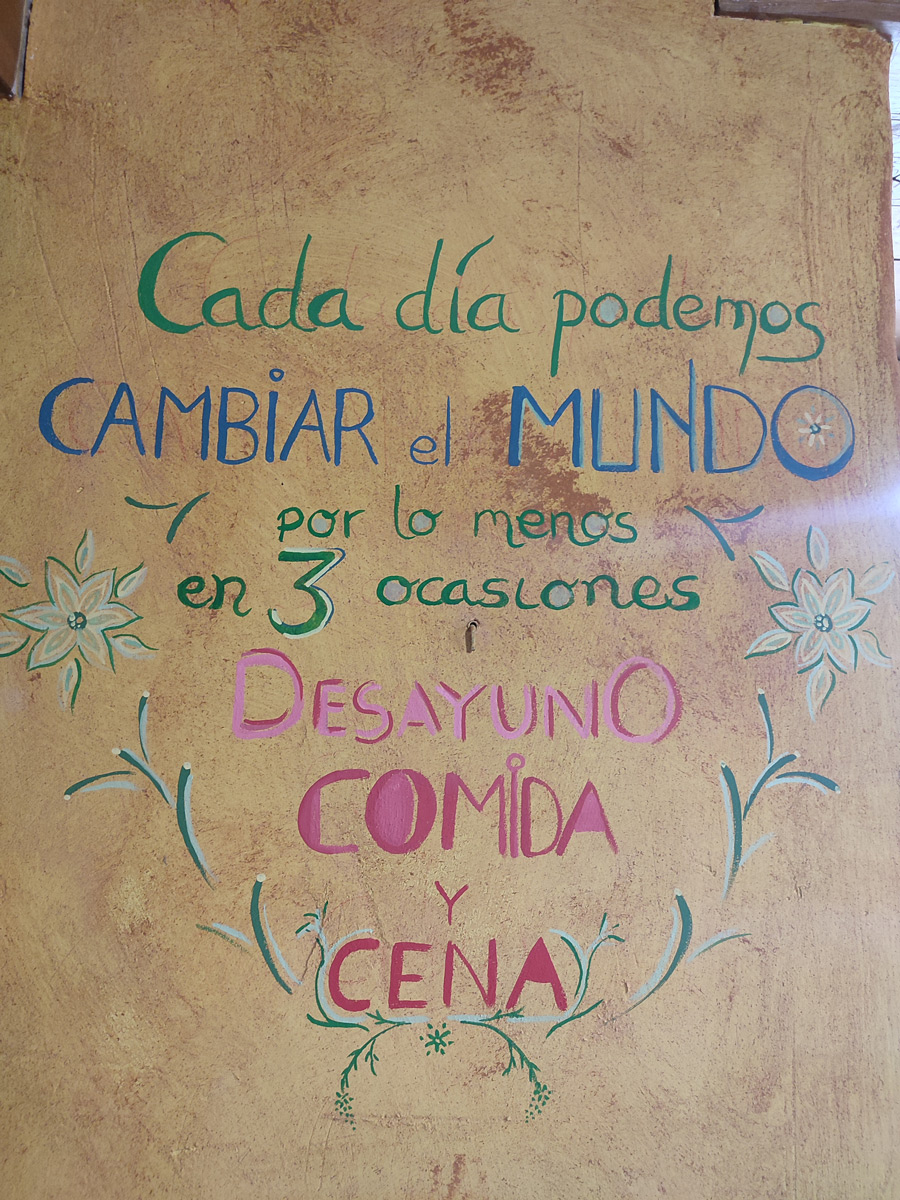 Cada día podemos
CAMBIAR el MUNDO
por lo menos
en 3 ocasiones
DESAYUNO
COMIDA
Y
CENA